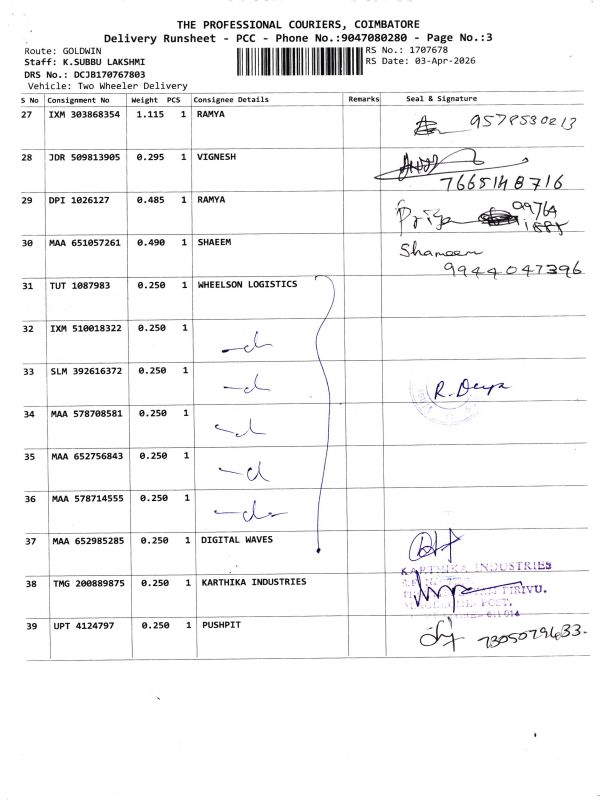 THE PROFESSIONAL COURIERS, COIMBATORE
Delivery Runsheet - PCC - Phone No.:9047080280 - Page No.:3
Route: GOLDWIN RS No.: 1707678
Staff: K.SUBBU LAKSHMI RS Date: 03-Apr-2026
DRS No.: DCJB170767803
Vehicle: Two Wheeler Delivery
S No Consignment No Weight PCS Consignee Details Remarks Seal & Signature
27 IXM 303868354 1.115 1 RAMYA
9578530213
28 JDR 509813905 0.295 1 VIGNESH
7665148716
29 DPI 1026127 0.485 1 RAMYA
Priya 99764
30 MAA 651057261 0.490 1 SHAEEM
Shameem
9944047396
31 TUT 1087983 0.250 1 WHEELSON LOGISTICS
32 IXM 510018322 0.250 1
33 SLM 392616372 0.250 1
R. Deepa
34 MAA 578708581 0.250 1
35 MAA 652756843 0.250 1
36 MAA 578714555 0.250 1
37 MAA 652985285 0.250 1 DIGITAL WAVES
KARTHIKA INDUSTRIES
38 TMG 200889875 0.250 1 KARTHIKA INDUSTRIES
PIRIVU.
POST,
39 UPT 4124797 0.250 1 PUSHPIT
7305079633.